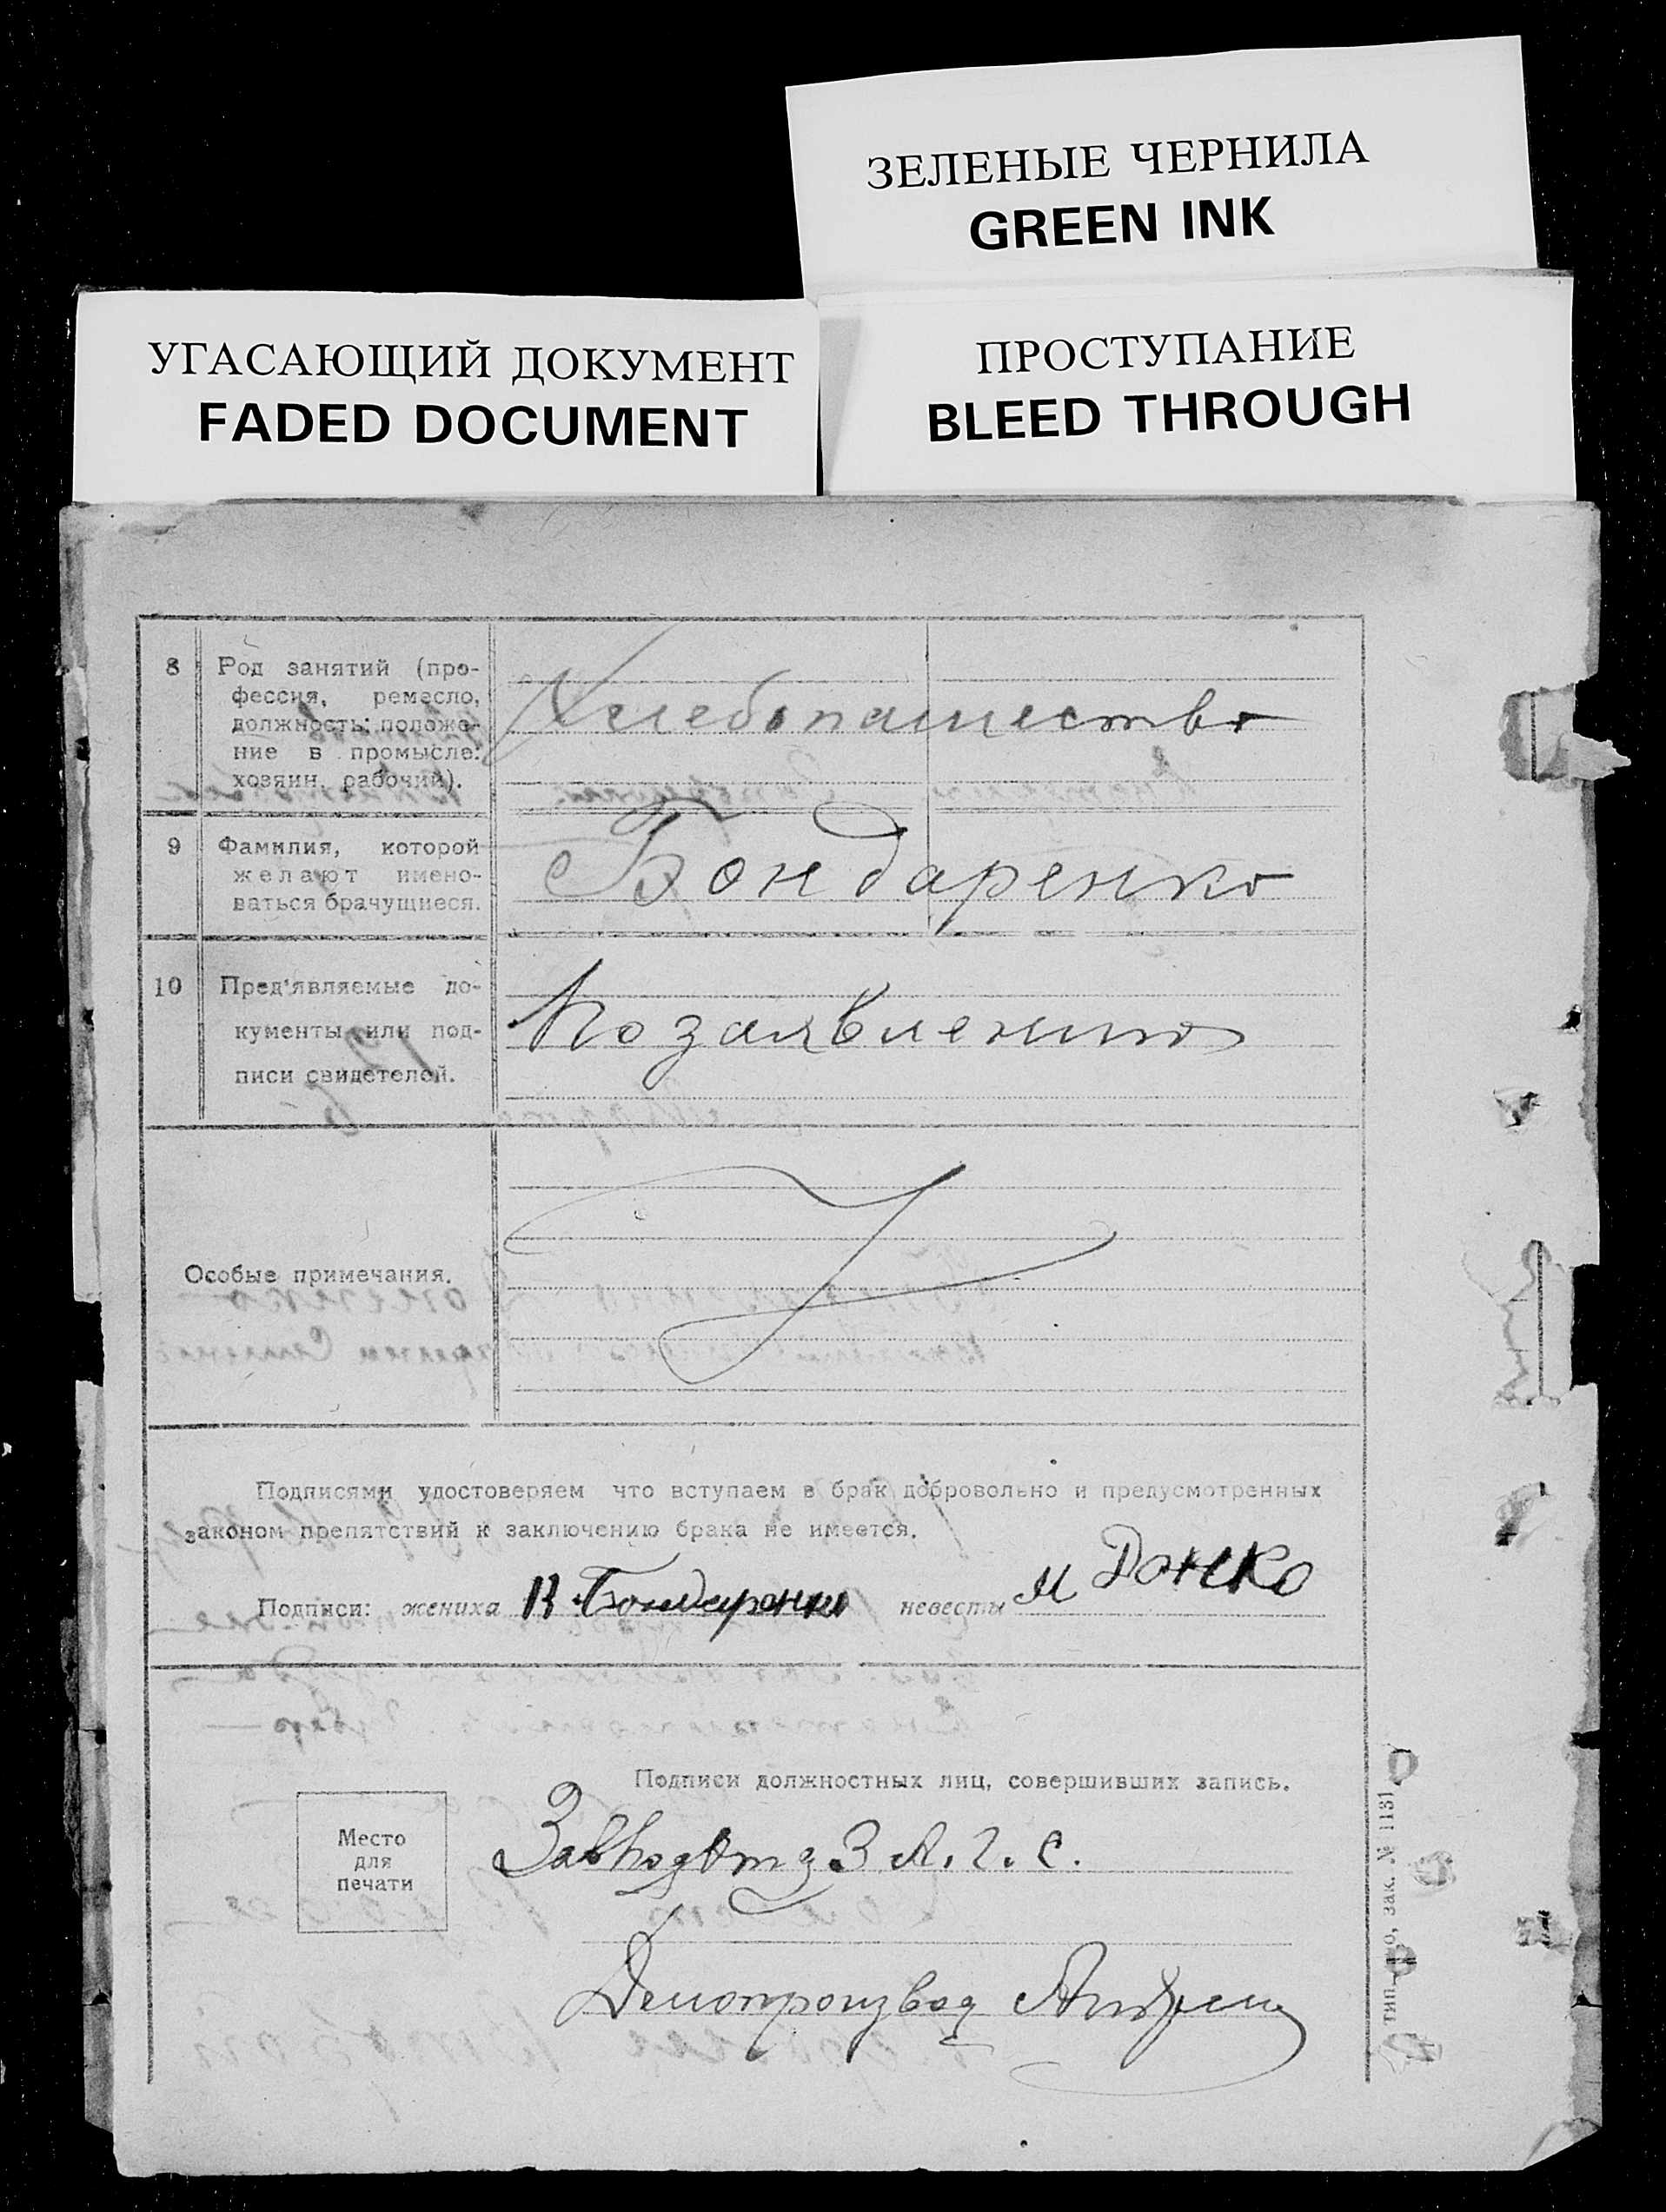 ЗЕЛЕНЫЕ ЧЕРНИЛА
GREEN INK
УГАСАЮЩИЙ ДОКУМЕНТ
FADED DOCUMENT
ПРОСТУПАНИЕ
BLEED THROUGH
8 Род занятий (про-
фессия, ремесло,
должность: положе-
ние в промысле:
хозяин, рабочий).
Хлебопашество
9 Фамилия, которой
желают имено-
ваться брачущиеся.
Бондаренко
10 Пред'являемые до-
кументы или под-
писи свидетелей.
По заявлению
Особые примечания.
Подписями удостоверяем что вступаем в брак добровольно и предусмотренных
законом препятствий к заключению брака не имеется.
Подписи: жениха В. Бондаренко невесты М Донско
Подписи должностных лиц, совершивших запись.
Место
для
печати
З. А. Г. С.
Делопроизвод
зак. № 1131